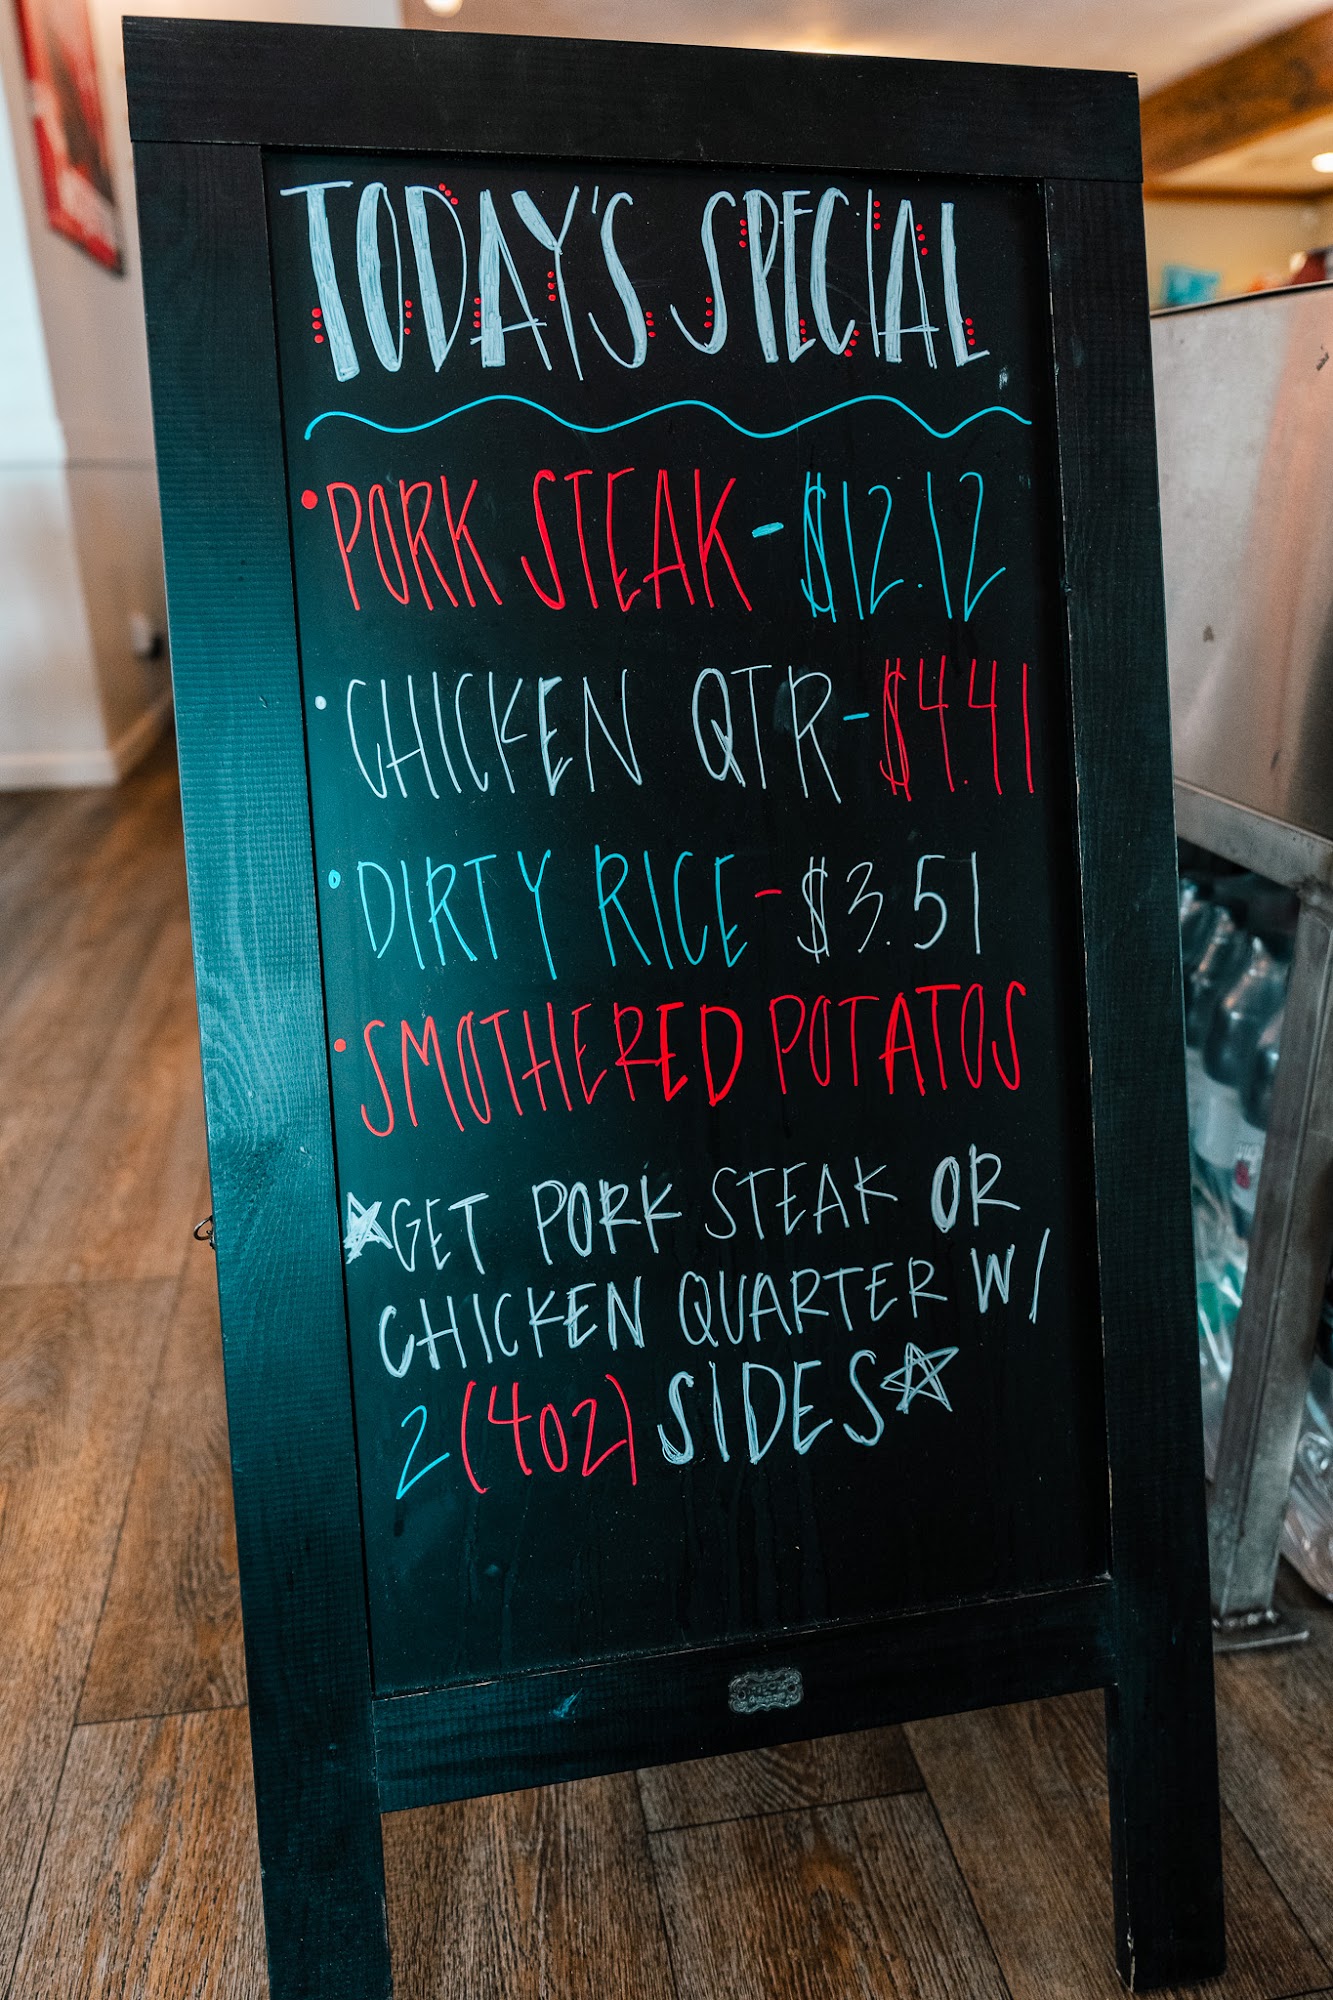 TODAY'S SPECIAL
• PORK STEAK - $12.12
• CHICKEN QTR - $4.41
• DIRTY RICE - $3.51
• SMOTHERED POTATOS
☆GET PORK STEAK OR
CHICKEN QUARTER W/
2 (4OZ) SIDES☆